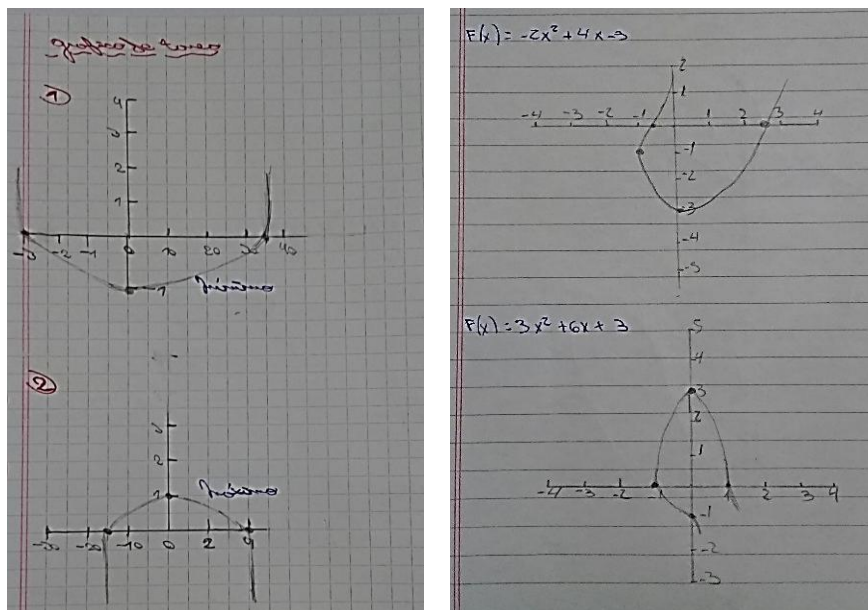 ①
4
3
2
1
-3 -2 -1 0 10 20 30 40
-1 Mínimo
②
3
2
1 Máximo
-30 -20 -10 0 2 4
F(x) = -2x² + 4x - 3
2
1
-4 -3 -2 -1 1 2 3 4
-1
-2
-3
-4
-5
F(x) = 3x² + 6x + 3
5
4
3
2
1
-4 -3 -2 -1 1 2 3 4
-1
-2
-3